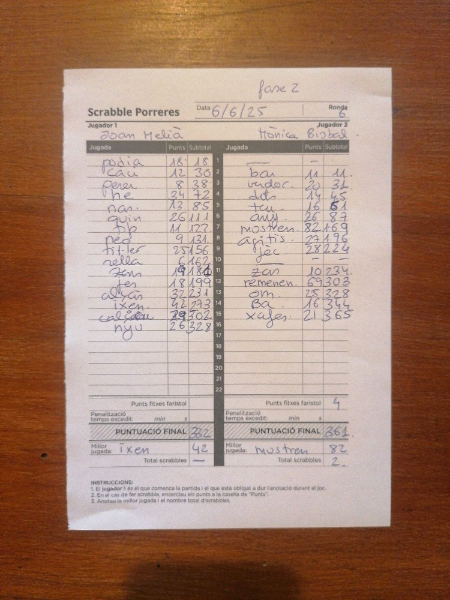 fase 2
Scrabble Porreres Data 6/6/25 Ronda 6
Jugador 1 Jugador 2
Joan Melià Mònica Bisbal
Jugada Punts Subtotal Jugada Punts Subtotal
podia 18 18 1 — —
cau 12 30 2 bau 11 11
peren 8 38 3 verdor 20 31
he 34 72 4 dot 14 45
nas 13 85 5 teu 16 61
quin 26 111 6 any 26 87
tip 11 122 7 mostren 82 169
neo 9 131 8 agitis 27 196
titller 25 156 9 jec 28 224
rella 6 162 10 — —
19 181 11 zas 10 234
fer 18 199 12 remenen 69 303
alçar 32 231 13 om 25 328
ixen 42 273 14 Ba 16 344
29 302 15 xafes 21 365
nyu 26 328 16
17
18
19
20
21
22
Punts fitxes faristol Punts fitxes faristol 4
Penalització temps excedit: min s Penalització temps excedit: min s
PUNTUACIÓ FINAL PUNTUACIÓ FINAL 361
Millor jugada: ixen 42 Millor jugada: mostren 82
Total scrabbles — Total scrabbles 2
INSTRUCCIONS:
1. El jugador 1 és el que comença la partida i el que està obligat a dur l'anotació durant el joc.
2. En el cas de fer scrabble, encercleu els punts a la casella de "Punts".
3. Anoteu la millor jugada i el nombre total d'scrabbles.